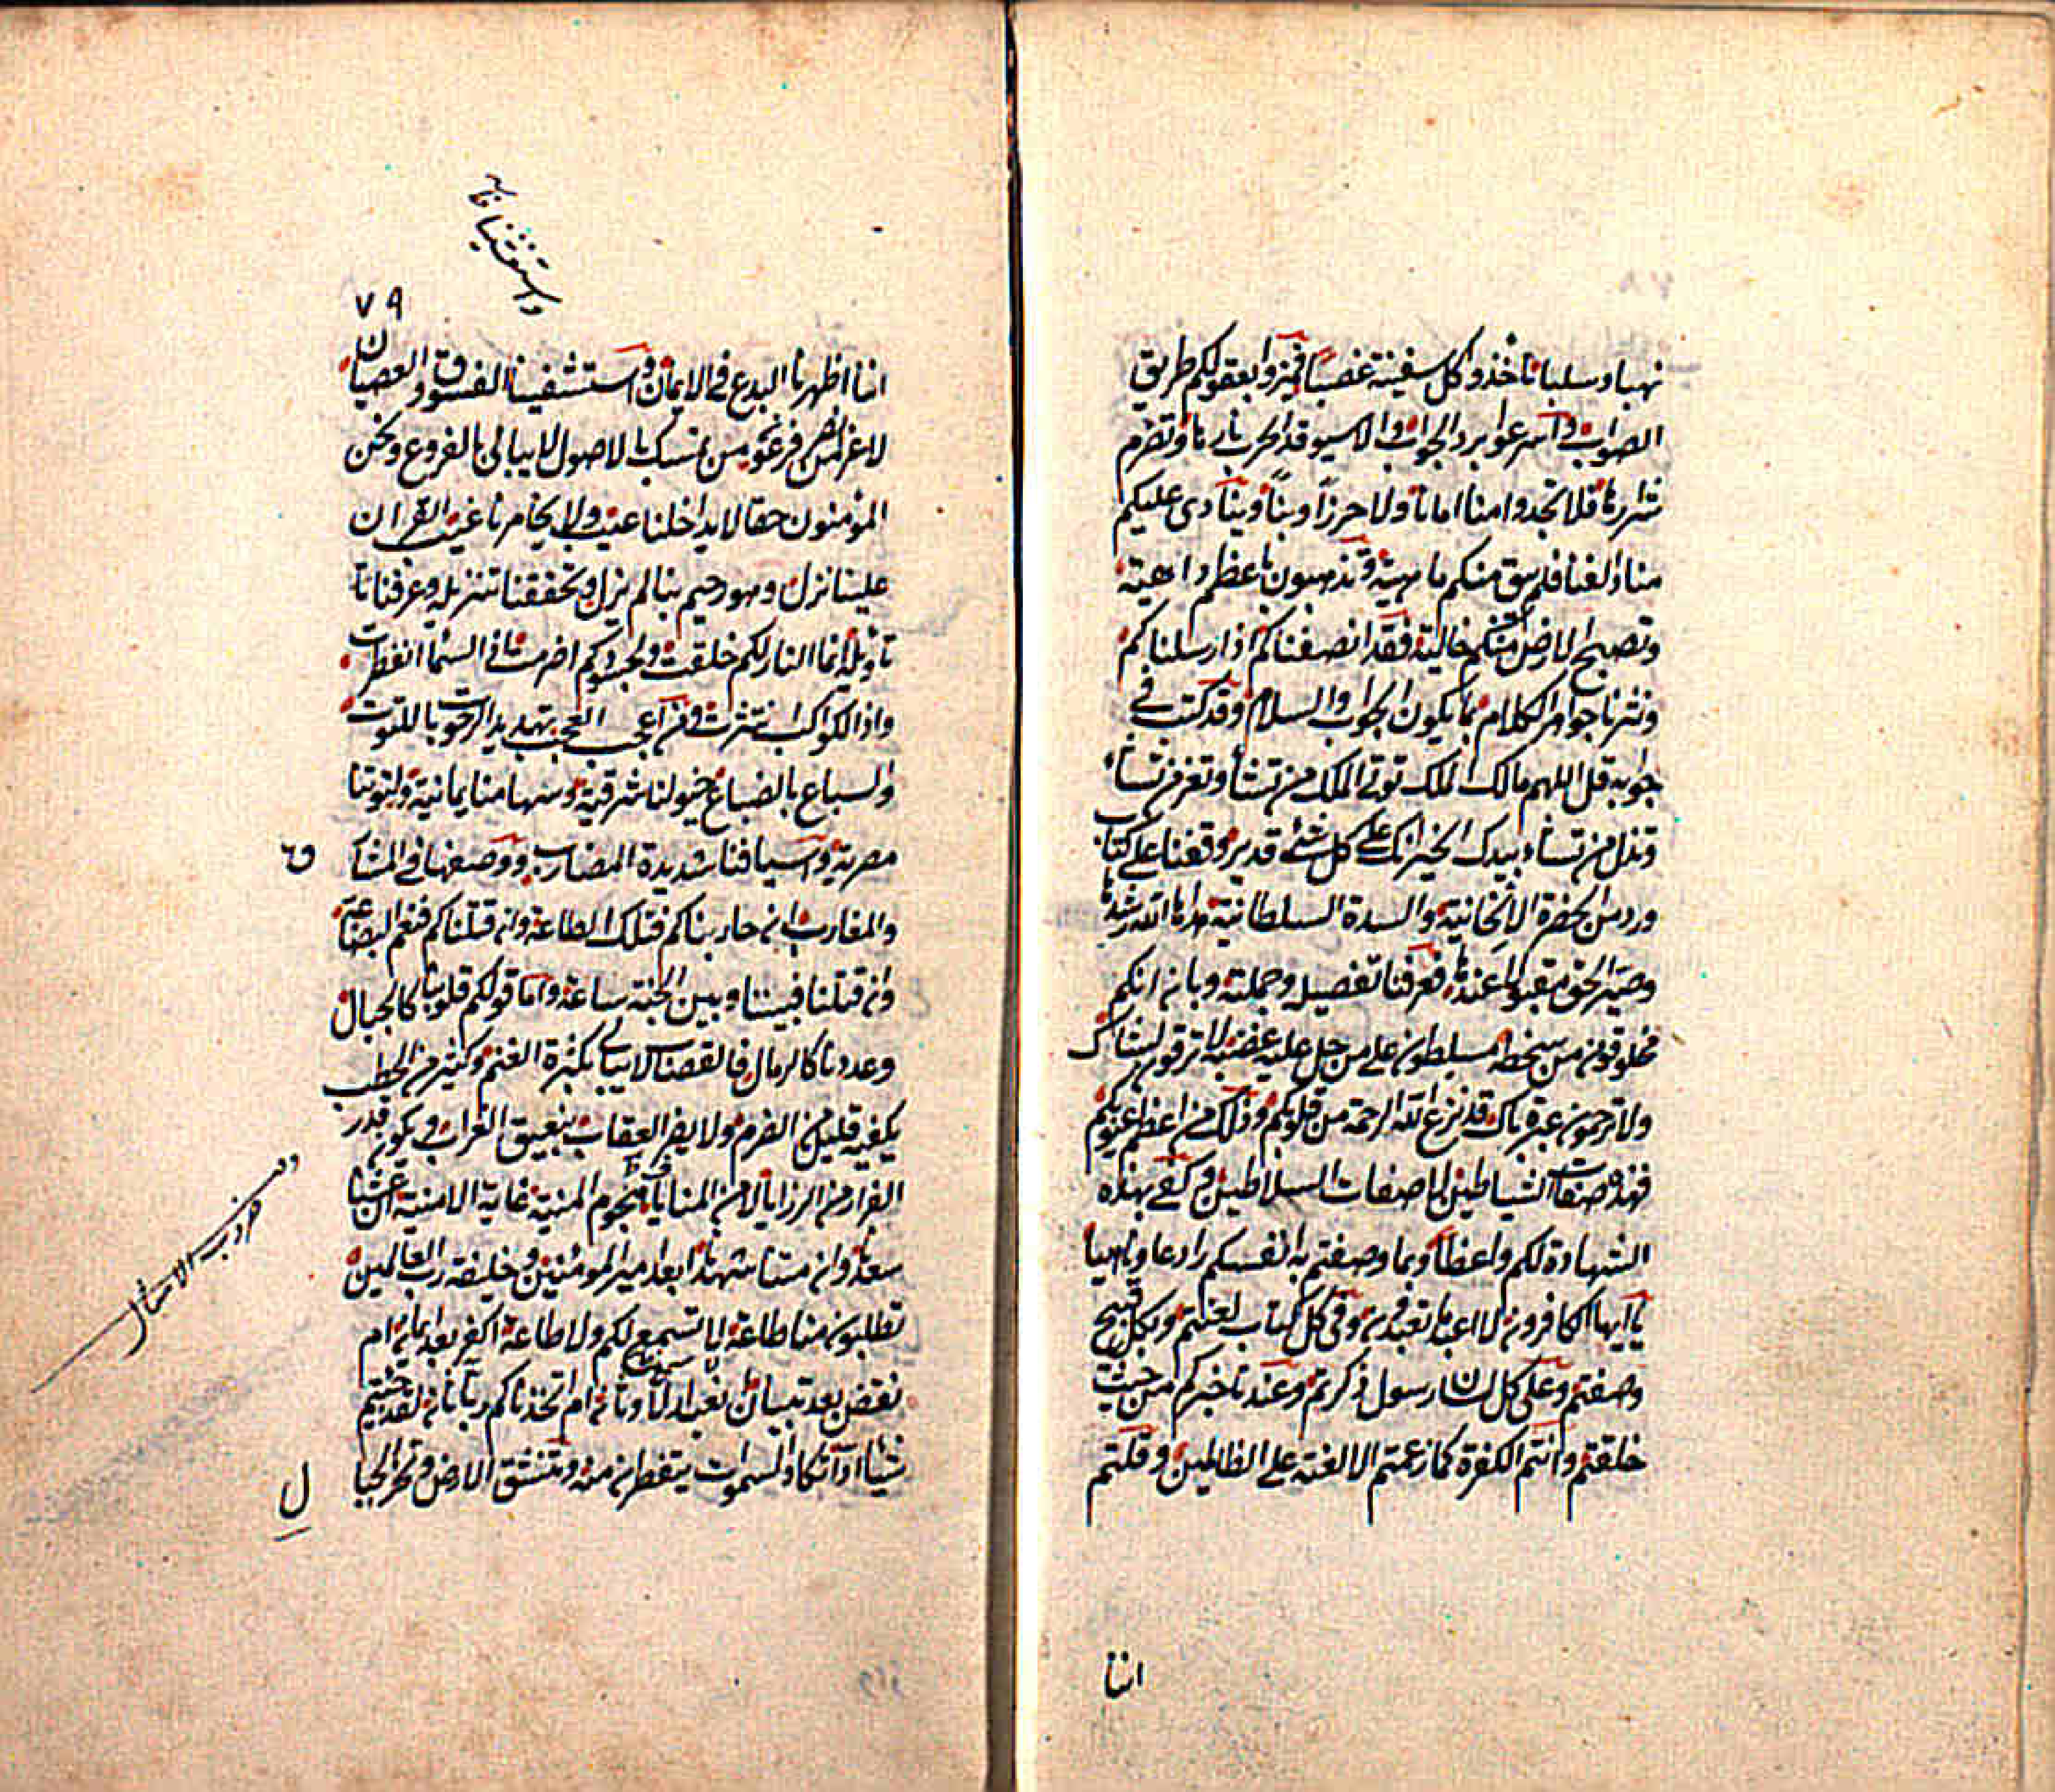 نهبا وسلبا تأخذوا كل سفينة غصبا فميزوا بعقولكم طريق
الصواب واسرعوا برد الجواب والا سيوقد الحرب نارنا وتضرم
شرارنا فلا تجدوا منا امانا ولا حرزا وينادى عليكم
منادى الفنا فلم يبق منكم ما هية وتذهبون باعظم داهية
وتصبح الارض منكم خالية فقد انصفناكم اذ ارسلنا كم
ونثرنا جواهر الكلام بما يكون الجواب والسلام وقد كتب فى
جوابه قل اللهم مالك الملك توتى الملك من تشأ وتعز من تشاء
وتذل من تشاء بيدك الخير انك على كل شئ قدير وقفنا على كتاب
ورد من الحضرة الايلخانية والسدة السلطانية هداها الله رشدها
وصير الحق مقبولا عندها فعرفنا تفصيله وجملته وبان انكم
مخلوقون من سخطه مسلطون على من حل عليه غضبه لا ترقون لشاك
ولا ترحمون عبرة باك قد نزع الله الرحمة من قلوبكم وذلك من اعظم عيوبكم
فهذه صفات الشياطين لا صفات السلاطين وكفى بهذه
الشهادة لكم واعظا وبما وصفتم به انفسكم رادعا وناهيا
يا ايها الكافرون لا اعبد ما تعبدون وفى كل كتاب لعنتم وبكل قبيح
وصفتم وعلى كل لسان رسول ذكرتم وعندنا خبركم من حيث
خلقتم وانتم الكفرة كما زعمتم الا لعنة على الظالمين وقلتم
اننا
٧٩
اننا اظهرنا البدع فى الايمان واستشفينا الفسوق والعصيان
لا غرو من فرعون من تمسك بالاصول لا يبالى بالفروع ونحن
المؤمنون حقا لا يداخلنا عيب ولا يخامرنا غيب القران
علينا نزل وهو رحيم بنا لم يزل وتحققنا تنزيله وعرفنا
تأويله انما النار لكم خلقت ولجلودكم اضرمت اذا السماء انفطرت
واذا الكواكب انتثرت ومن اعجب العجب تهديد الرتوت بالتوت
والسباع بالضباع خيولنا شرقية وسهامنا يمانية وليوثنا
مصرية واسيافنا شديدة المضارب ووصفها فى المشا
رق
والمغارب ان حاربناكم فتلك الطاعة وان قتلناكم فنعم البضاعة
وان قتلنا فبيننا وبين الجنة ساعة واما قولكم قلوبنا كالجبال
وعددنا كالرمال فالقصاب لا يبالى بكثرة الغنم وكثير من الحطب
يكفيه قليل من الضرم ولا يفر العقاب بنعيق الغراب ويكون قدر
الفرار من الرزايا لا من المنايا فهجوم المنية غاية الامنية ان عشنا
سعدا وان متنا شهدا ابعد امير المؤمنين وخليفة رب العالمين
تطلبون منا طاعة لا تسمع لكم ولا طاعة اكفر بعد ايمان ام
نقض بعد تبيان نعبد اوثان ام اتخذناكم ربا ثان لقد جئتم
شيأ ادا تكاد السموات يتفطرن منه وتنشق الارض وتخر الجبا
ل